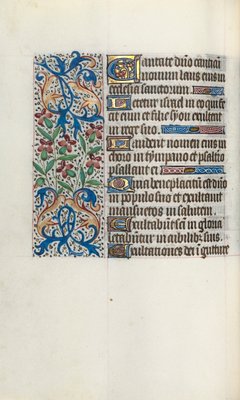 Cantate dño canticū
nouum laus eius in
ecclesia sanctorum
Letetur israel in eo qui fe
cit eum et filie syon exultent
in rege suo
Laudent nomen eius in
choro in tympano et psalterio
psallant ei
Quia beneplacitū est dño
in populo suo et exaltauit
mansuetos in salutem
Exultabunt sc̄i in gloria
letabūtur in cubilibꝫ suis
Exultationes dei ī gutture